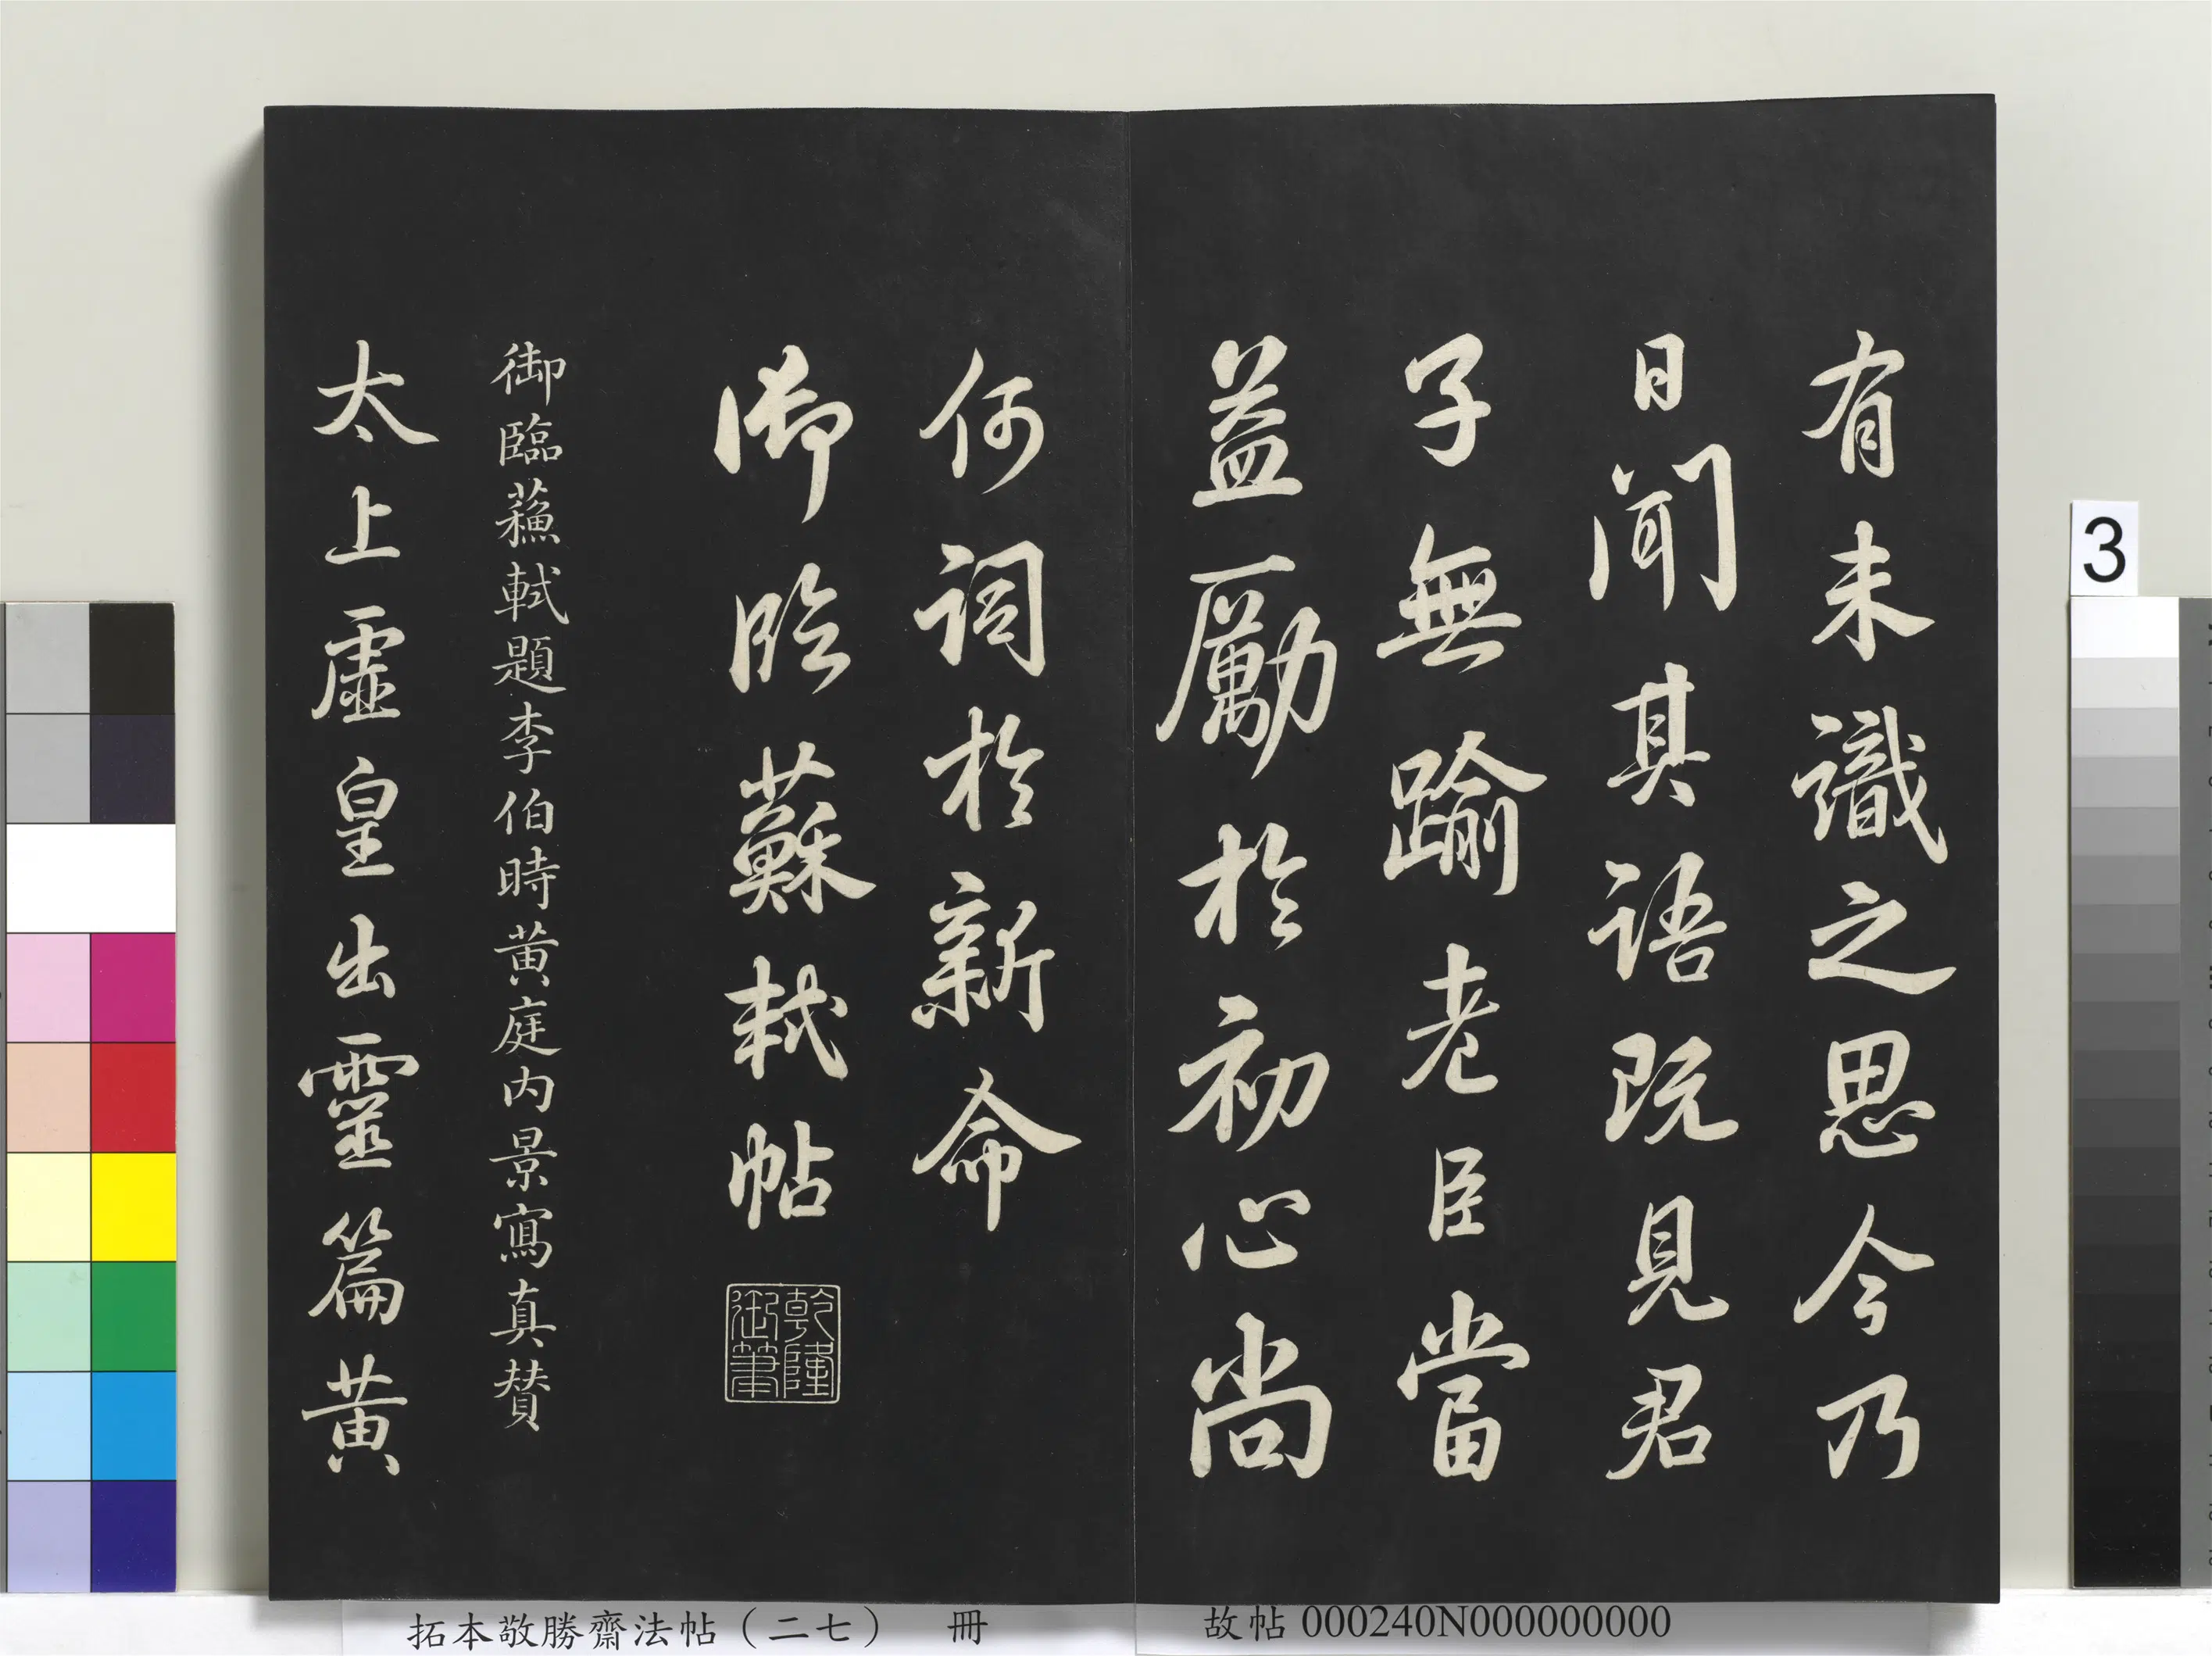 有未識之思今乃
日聞其語既見君
子無踰老臣當
益勵於初心尚
何詞於新命
御臨蘇軾帖
乾隆御筆
御臨蘓軾題李伯時黄庭内景寫真賛
太上虛皇出靈篇黄
拓本敬勝齋法帖（二七） 冊
故帖 000240N000000000
3